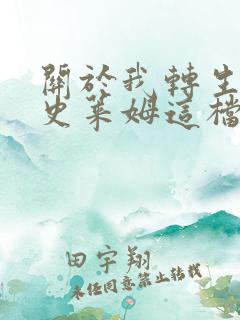 關於我轉生
史萊姆這檔
田宇翔
未經同意禁止轉載